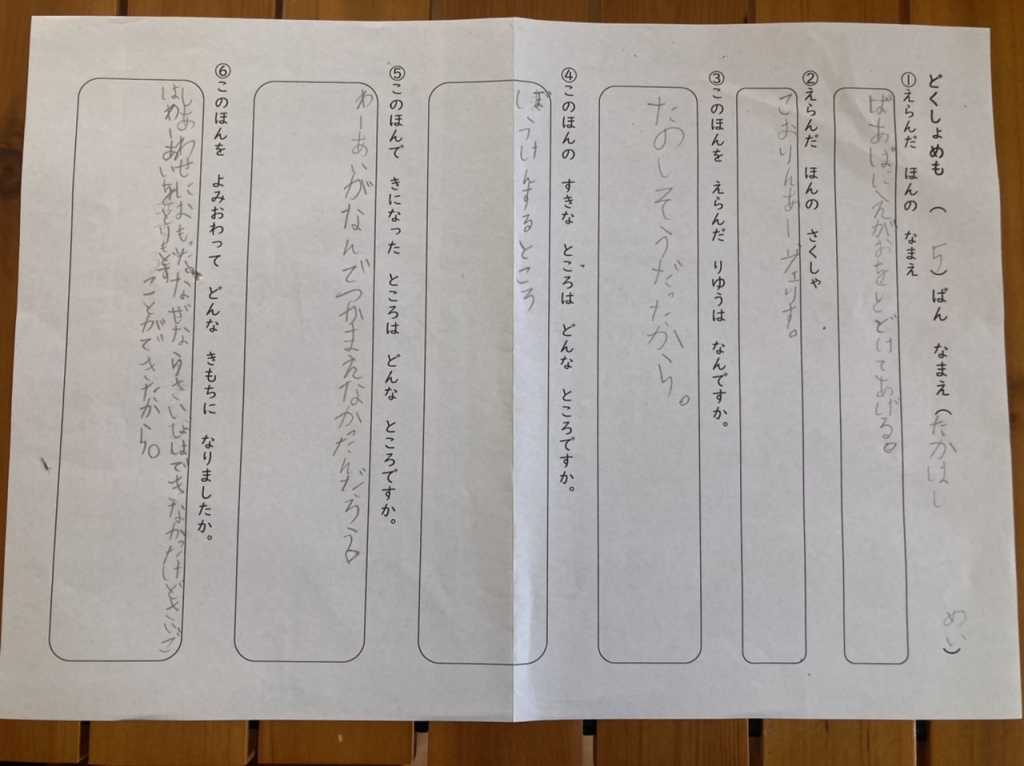 どくしょめも ( 5 )ばん なまえ(たかはし めい)
①えらんだ ほんの なまえ
ばあばにえがおをとどけてあげる。
②えらんだ ほんの さくしゃ
こおりんあーヴェりす。
③このほんを えらんだ りゆうは なんですか。
たのしそうだったから。
④このほんの すきな ところは どんな ところですか。
ぼうけんするところ
⑤このほんで きになった ところは どんな ところですか。
わーあいがなんでつかまえなかったんだろう。
⑥このほんを よみおわって どんな きもちに なりましたか。
しあわせにおもった。なぜならさいしょはできなかったけどさいご
はわーあいをとりもどす ことができたから。